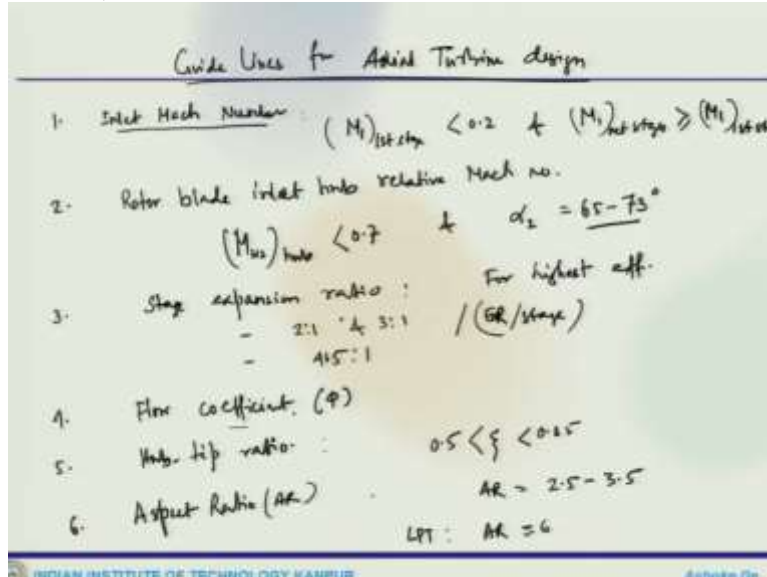 Guide Lines for Axial Turbine design
1. Inlet Mach Number : (M₁)1st stage < 0.2 & (M₁)nxt stage ≥ (M₁)1st st
2. Rotor blade inlet hub relative Mach no.
(Mw2)hub < 0.7 & α₂ = 65-73°
3. Stage expansion ratio : For highest eff.
- 2:1 & 3:1 / (ER/stage)
- 4.5:1
4. Flow coefficient. (φ)
5. Hub-tip ratio : 0.5 < ξ < 0.85
6. Aspect Ratio (AR) . AR = 2.5-3.5
LPT : AR = 6
INDIAN INSTITUTE OF TECHNOLOGY KANPUR Ashoke De